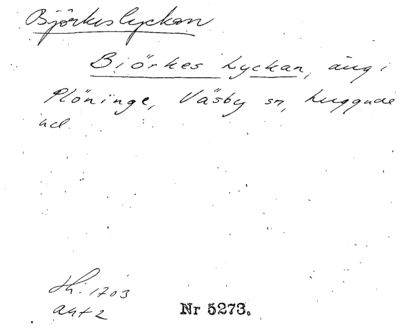 Björkeslyckan
Biörkes Lyckan, äng i
Plöninge, Väsby sn, Luggude
hd.
Lh: 1703
akt 2
Nr 5273.